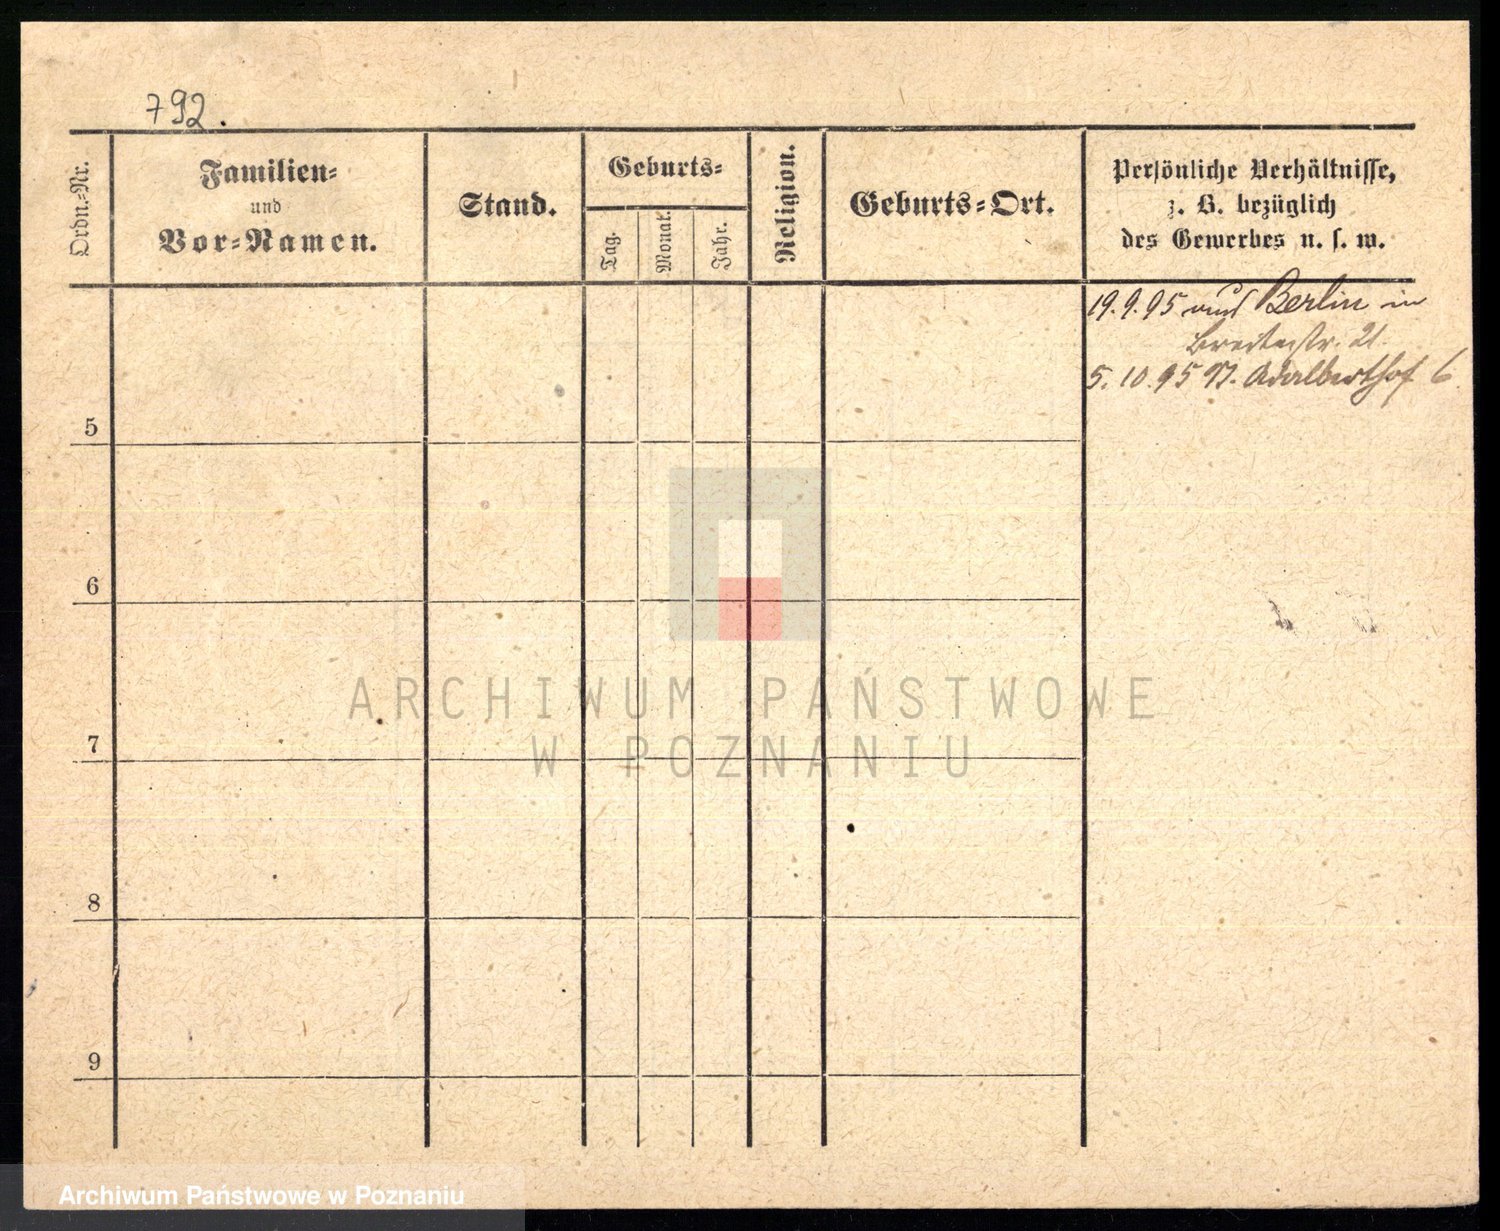 792.
Ordn.-Nr.
Familien-
und
Vor-Namen.
Stand.
Geburts-
Tag.
Monat.
Jahr.
Religion.
Geburts-Ort.
Persönliche Verhältnisse,
z. B. bezüglich
des Gewerbes u. s. w.
19.9.95 aus Berlin in
Breitestr. 21.
5.10.95 N. Adalberthof 6
5
6
7
8
9
ARCHIWUM PAŃSTWOWE
W POZNANIU
Archiwum Państwowe w Poznaniu